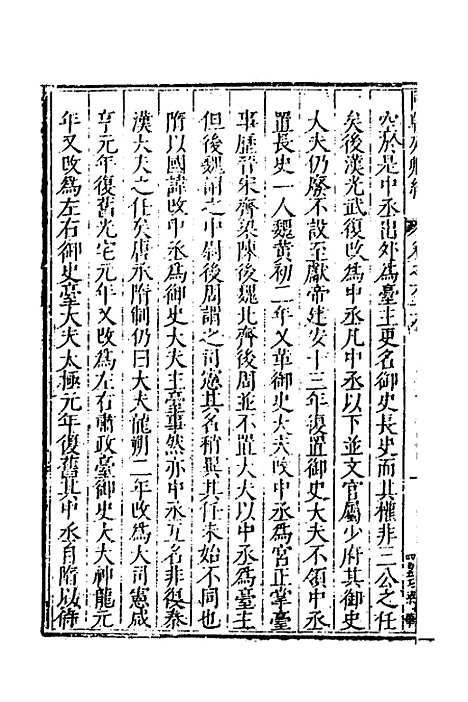 空於是中丞出外爲臺主更名御史長史而其權非三公之任
矣後漢光武復改爲中丞凡中丞以下並文官屬少府其御史
大夫仍廢不設至獻帝建安十三年復置御史大夫不領中丞
置長史一人魏黃初二年又革御史大夫改中丞爲宮正掌臺
事歷晉宋齊梁陳後魏北齊後周並不置大夫以中丞爲臺主
但後魏謂之中尉後周謂之司憲其名稍異其任未始不同也
隋以國諱改中丞爲御史大夫主臺事然亦中丞互名非復秦
漢大夫之任矣唐承隋制仍曰大夫龍朔二年改爲大司憲咸
亨元年復舊光宅元年又改爲左右肅政臺御史大夫神龍元
年又改爲左右御史臺大夫太極元年復舊其中丞自隋以倚